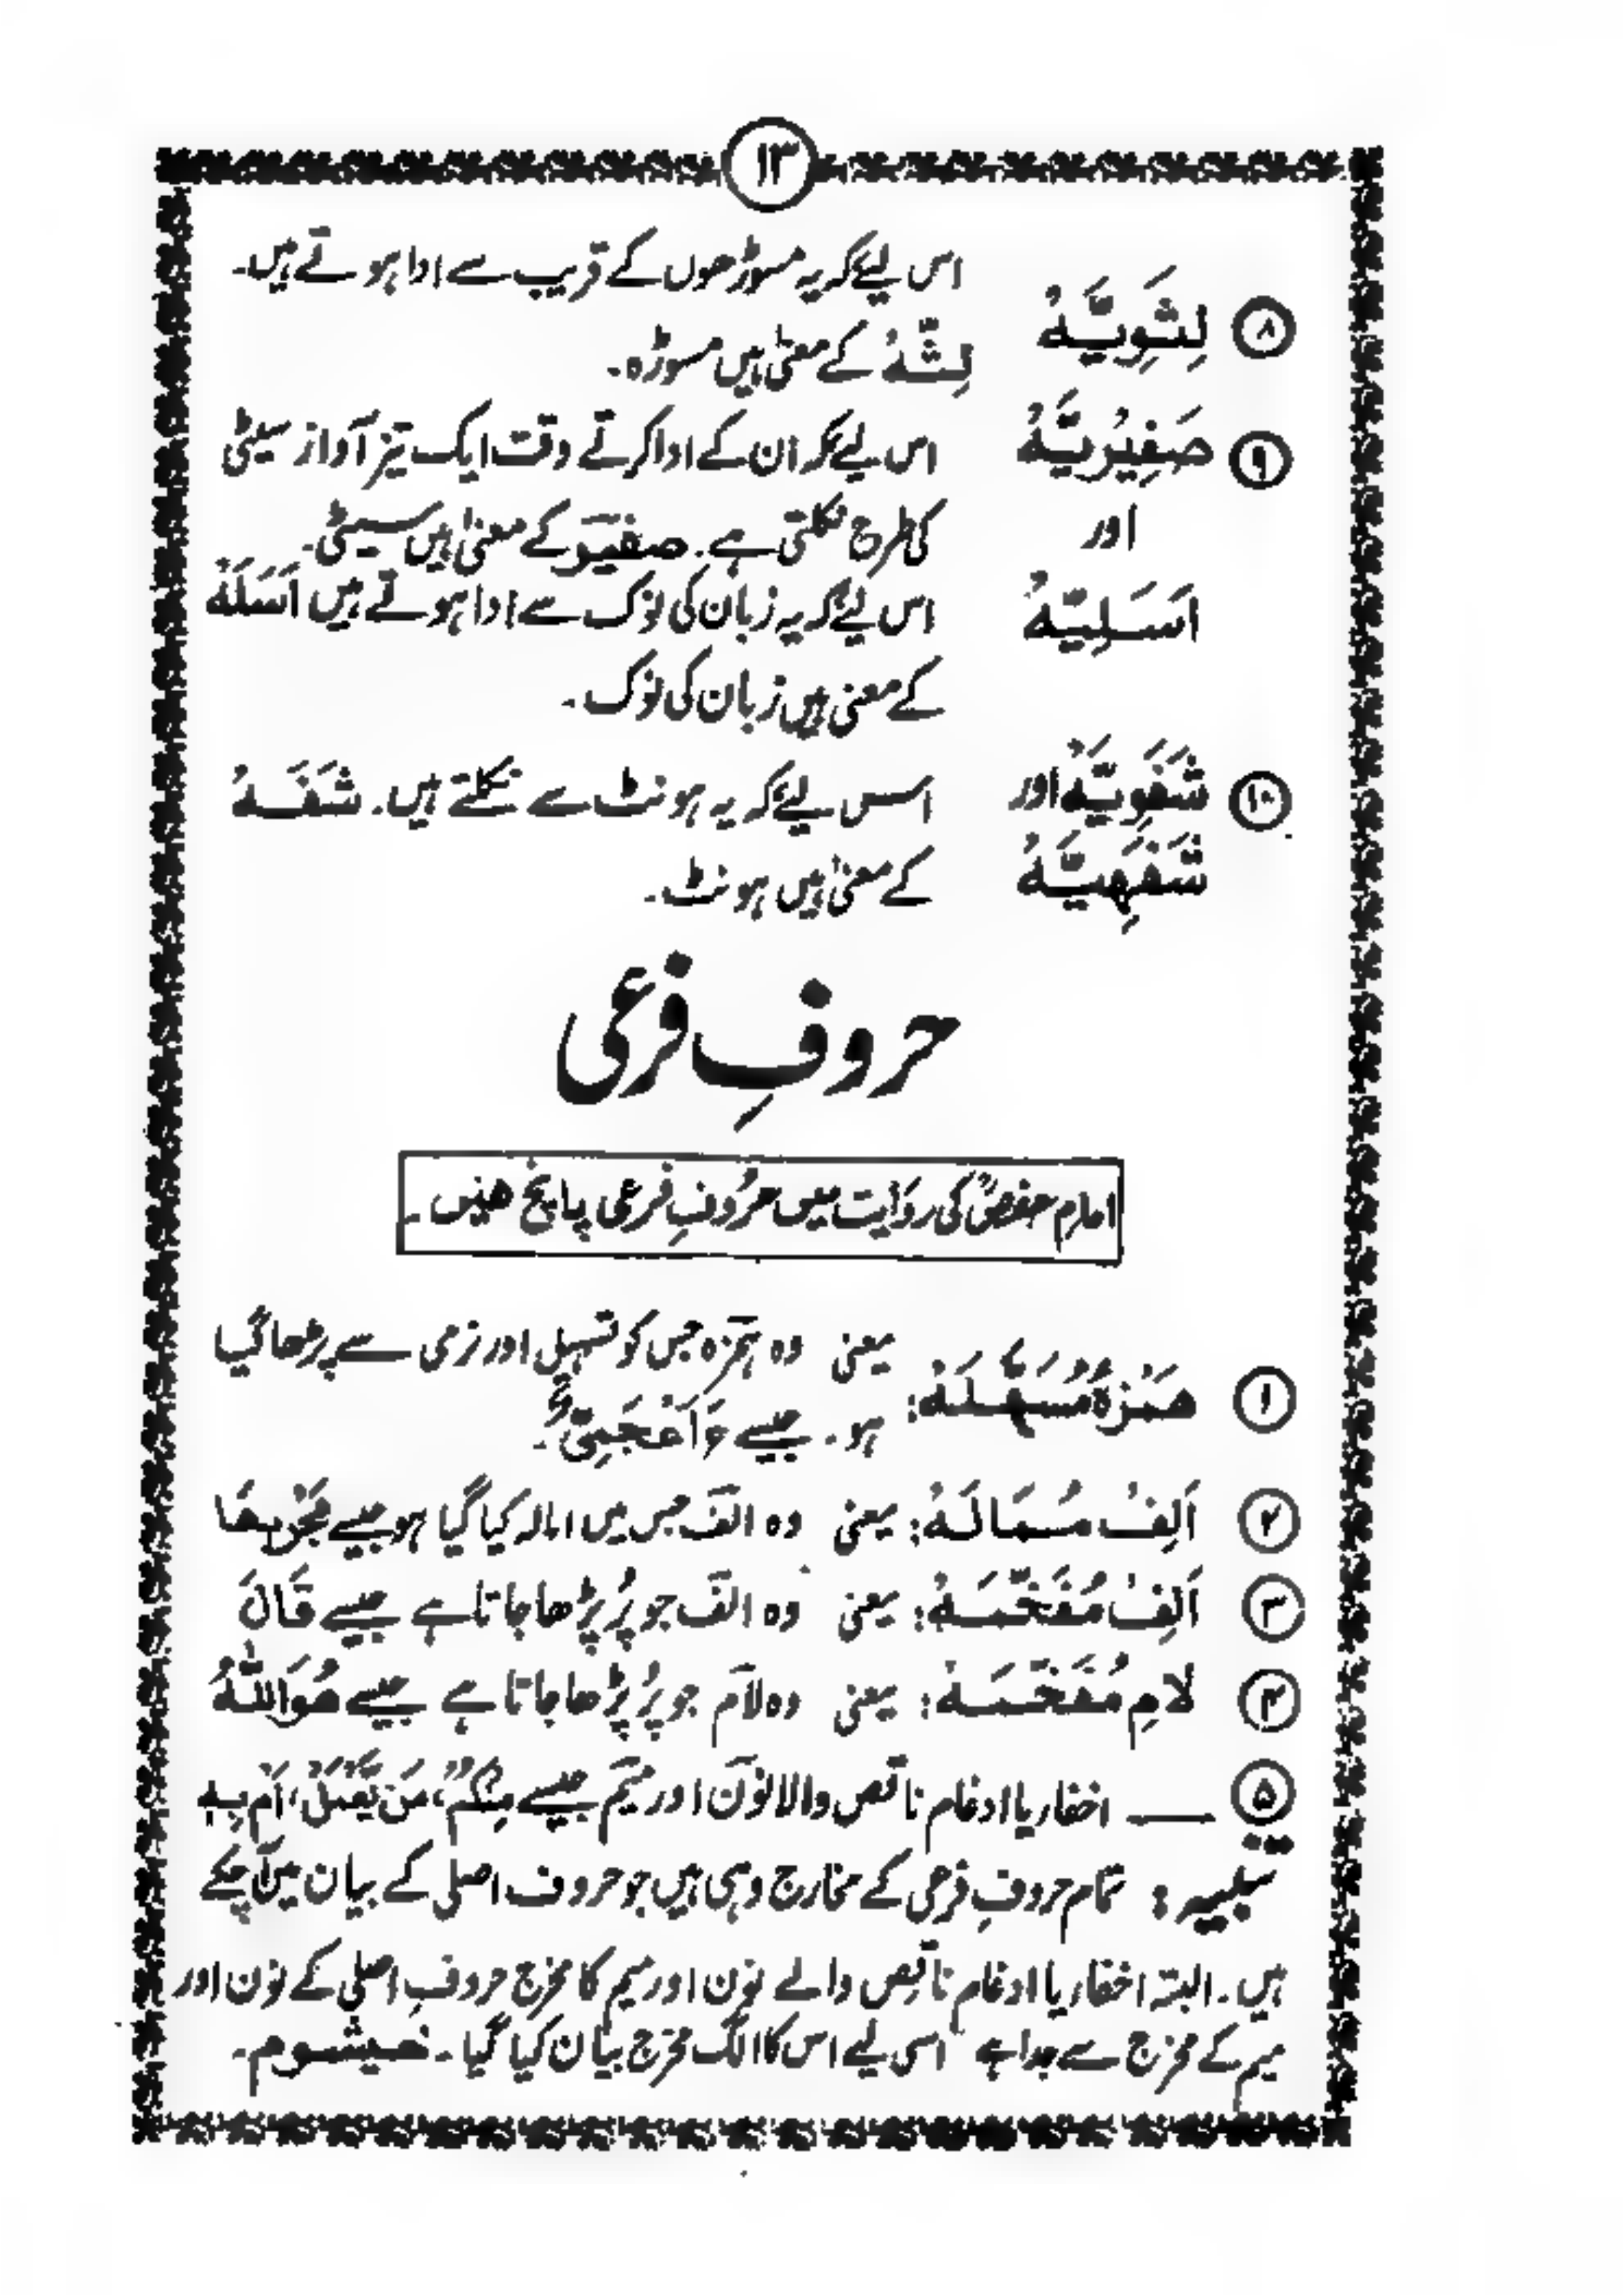 ۱۳
۸ لِثَوِيَّهُ اس لیے کہ یہ مسوڑھوں کے قریب سے ادا ہوتے ہیں۔
لِثَّهُ کے معنیٰ ہیں مسوڑہ۔
۹ صَفِيْرِيَّهُ اس لیے کہ ان کے ادا کرتے وقت ایک تیز آواز سیٹی
اور کی طرح نکلتی ہے۔ صفیر کے معنیٰ ہیں سیٹی۔
اَسَلِيَّهُ اس لیے کہ یہ زبان کی نوک سے ادا ہوتے ہیں اَسَلَهْ
کے معنی ہیں زبان کی نوک۔
۱۰ شَفَوِيَّهُ اور اس لیے کہ یہ ہونٹ سے نکلتے ہیں۔ شَفَهُ
شَفَهِيَّهُ کے معنیٰ ہیں ہونٹ۔
حروفِ فرعی
امام حفصؒ کی روایت میں حروفِ فرعی پانچ ہیں۔
۱ هَمْزَهُ مُسَهَّلَهْ: یعنی وہ ہمزہ جس کو تسہیل اور نرمی سے پڑھا گیا
ہو۔ جیسے ءَاَعْجَمِيٌّ۔
۲ اَلِفْ مُمَالَهُ: یعنی وہ الف جس میں امالہ کیا گیا ہو جیسے مَجْرٖىهَا
۳ اَلِفْ مُفَخَّمَهُ: یعنی وہ الف جو پُر پڑھا جاتا ہے جیسے قَالَ
۴ لامِ مُفَخَّمَهْ: یعنی وہ لام جو پُر پڑھا جاتا ہے جیسے هُوَاللّٰهُ
۵ ـــ اخفار یا ادغام ناقص والا نون اور میم جیسے مِنْكُمْ، مَنْ يَّعْمَلْ، اَمْ بِهٖ
تنبیہ: تمام حروفِ فرعی کے مخارج وہی ہیں جو حروف اصلی کے بیان میں آچکے
ہیں۔ البتہ اخفار یا ادغام ناقص والے نون اور میم کا مخرج حروفِ اصلی کے نون اور
میم کے مخرج سے جدا ہے اسی لیے اس کا الگ مخرج بیان کیا گیا۔ خیشوم۔